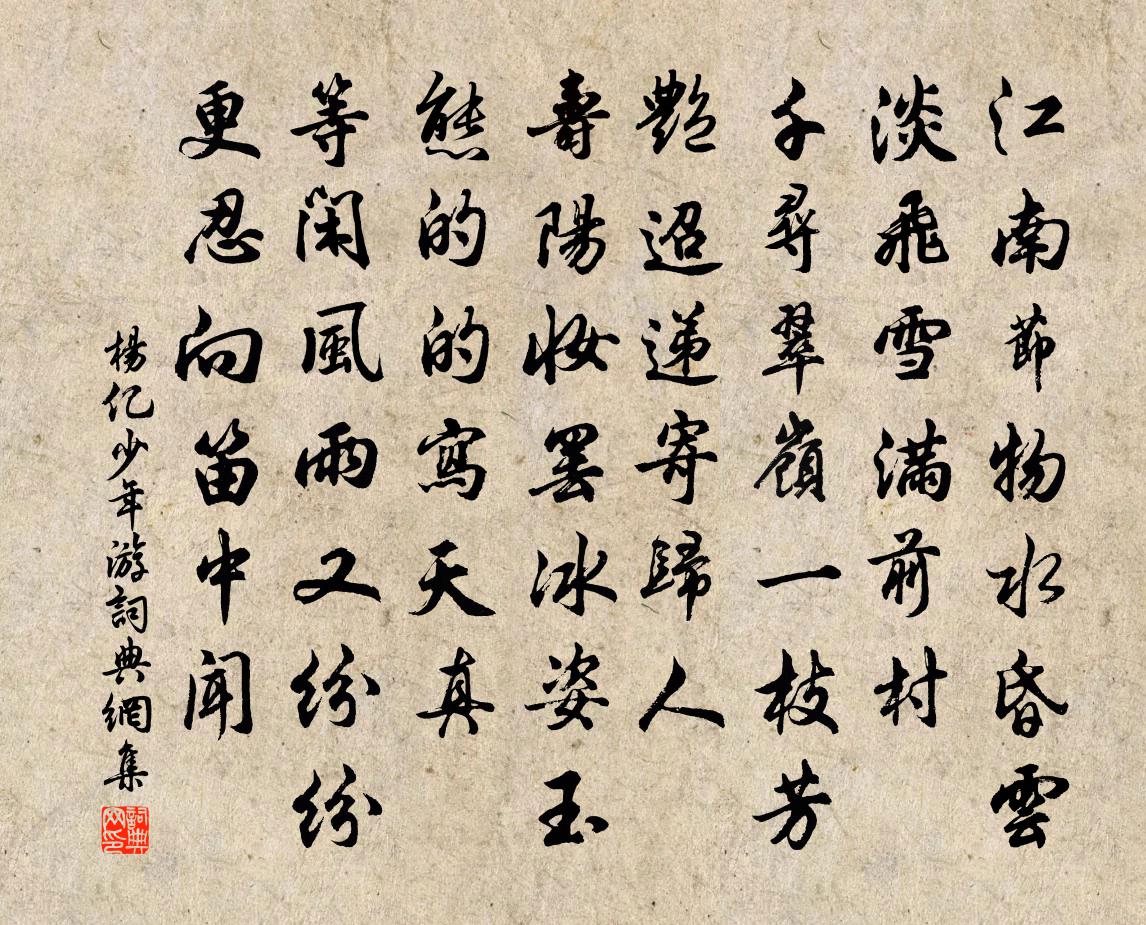 江南節物水昏雲
淡飛雪滿前村
千尋翠嶺一枝芳
艷迢遞寄歸人
壽陽妝罷冰姿玉
態的的寫天真
等閑風雨又紛紛
更忍向笛中聞
楊亿少年游詞典網集
詞典網印